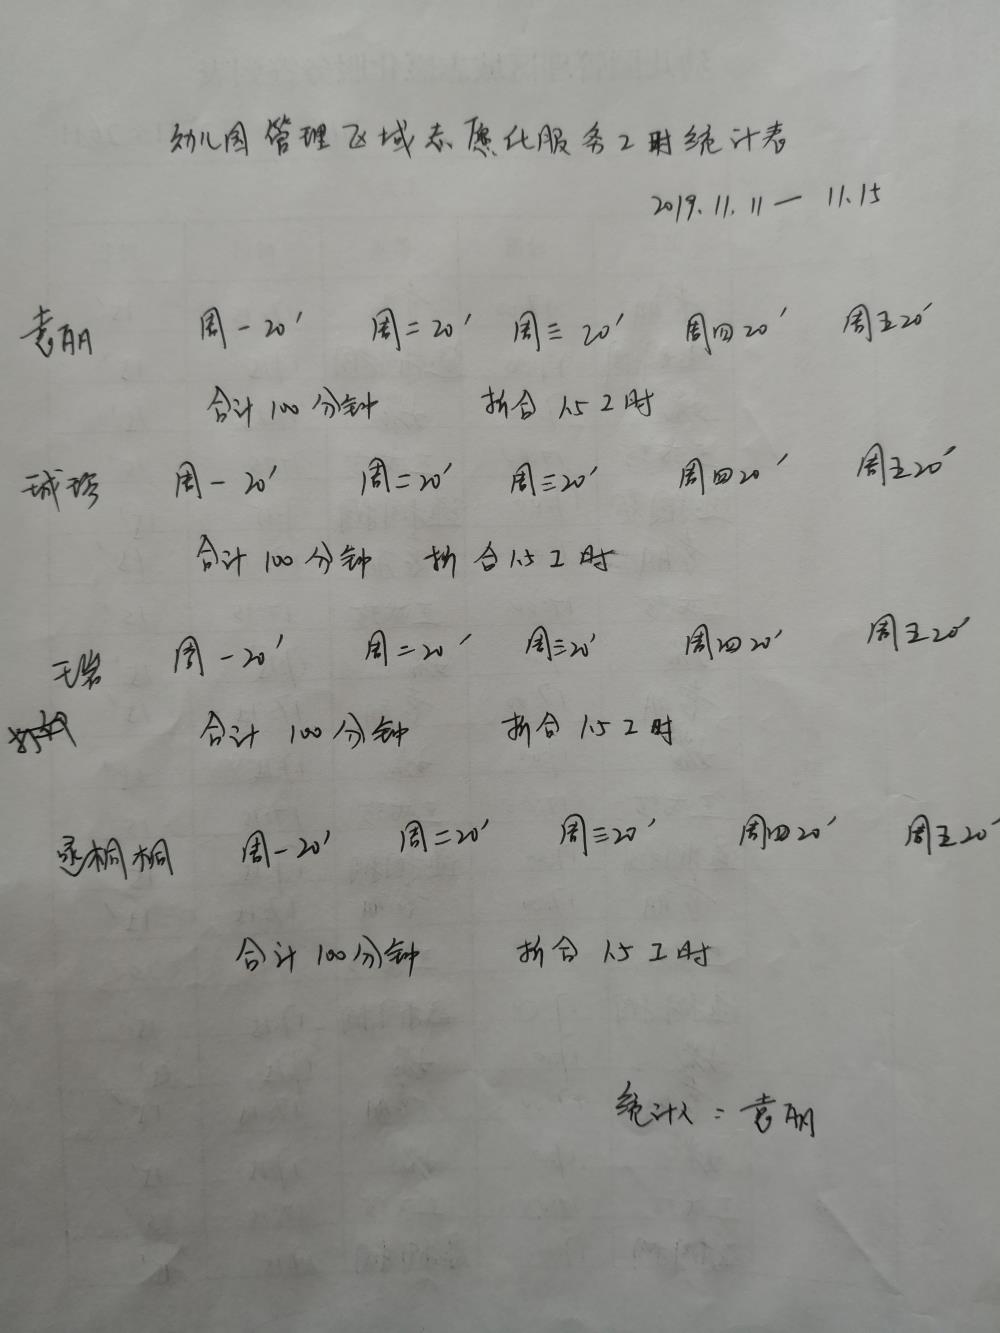 幼儿园管理区域志愿化服务工时统计表
2019.11.11一 11.15
袁丽 周一20′ 周二20′ 周三20′ 周四20′ 周五20′
合计100分钟 折合1.5工时
周一20′ 周二20′ 周三20′ 周四20′ 周五20′
合计100分钟 折合1.5工时
王岩 周一20′ 周二20′ 周三20′ 周四20′ 周五20′
合计100分钟 折合1.5工时
桐桐 周一20′ 周二20′ 周三20′ 周四20′ 周五20′
合计100分钟 折合1.5工时
统计人：袁丽